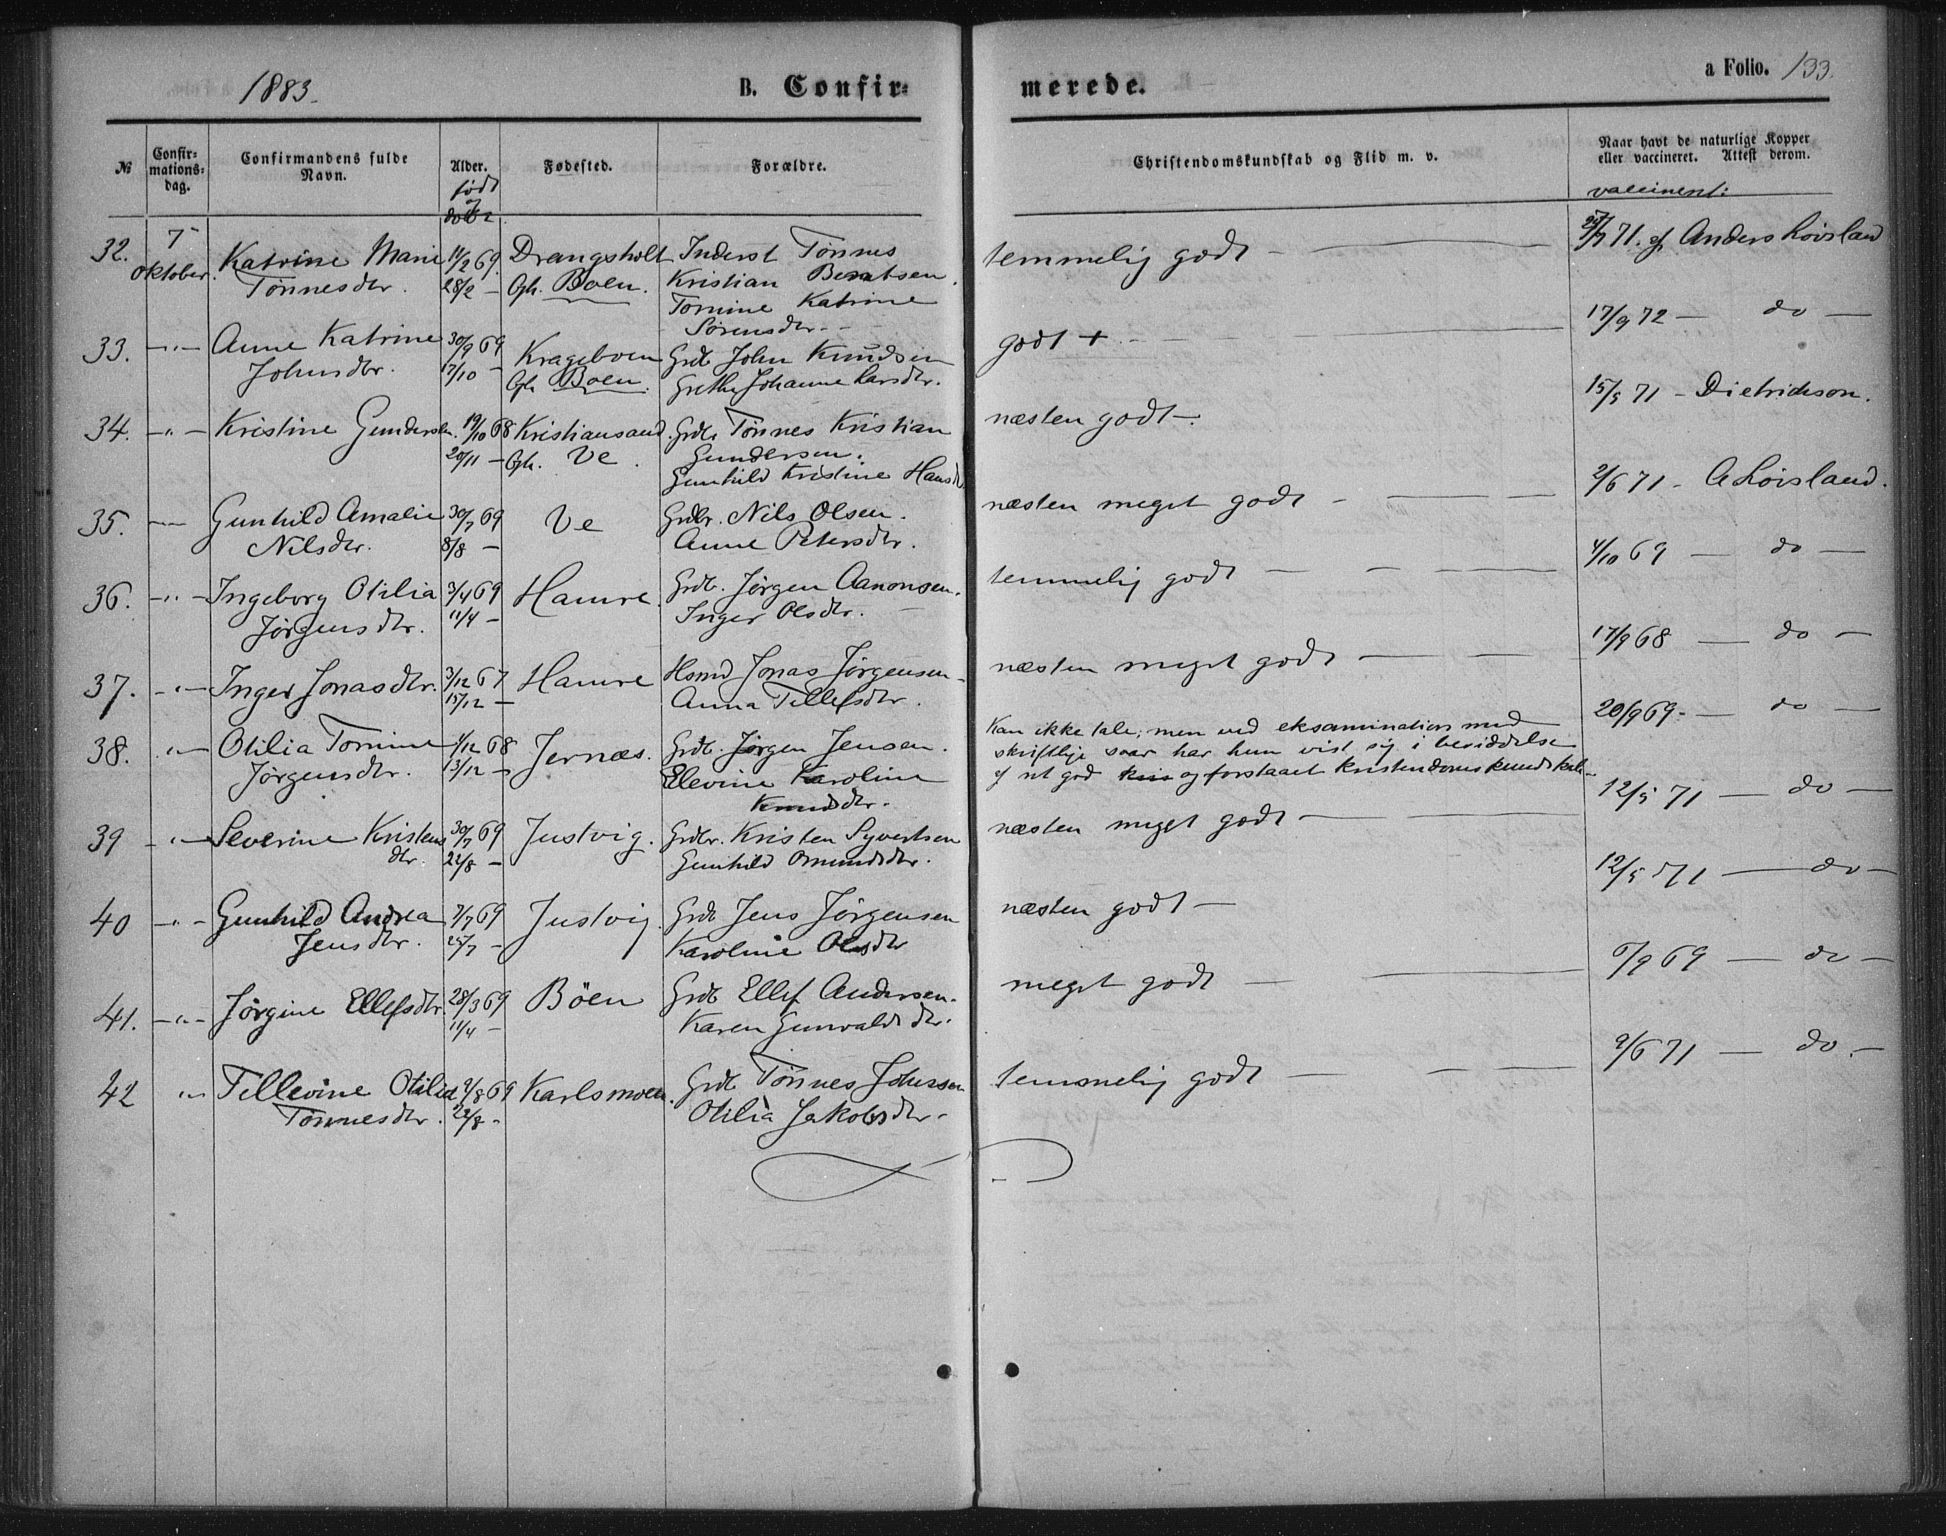 1883.
B. Confir=
merede.
a Folio. 133.
No
Confir=
mations=
dag.
Confirmandens fulde
Navn.
Alder.
født
og
døbt
Fødested.
Forældre.
Christendomskundskab og Flid m. v.
Naar havt de naturlige Kopper
eller vaccineret. Attest derom.
vaccineret:
32. 7 Oktober. Katrine Marie 11/2 69. Drangsholt Inderst Tønnes temmelig godt - /7 71. af Anders Løisland
Tønnesdtr. 28/2 - Gh. Boen. Kristian Berntsen.
Tomine Katrine
Sørensdtr. -
33. -"- Anne Katrine 30/9 69 Krageboen Grdb. John Knudsen godt + 17/9 72 - do -
Johnsdtr. 17/10 - Gh Boen. Grethe Johanne Larsdtr.
34. -"- Kristine Gundersen. 19/10 68 Kristiansand Grdb. Tønnes Kristian næsten godt -. 15/5 71 - Dietrichson.
20/11 - Gh. Ve. Gundersen.
Gunhild Kristine Hansd
35. -"- Gunhild Amalie 30/7 69 Ve Grdbr. Nils Olsen. næsten meget godt - 2/6 71 - A Løisland.
Nilsdtr. 8/8 - Anne Petersdtr.
36. -"- Ingeborg Otilia 3/4 69 Hamre. Grdb. Jørgen Aanonsen. temmelig godt - 4/10 69 - do -
Jørgensdtr. 11/4 - Inger Olsdtr.
37. -"- Inger Jonasdtr. 3/12 67 Hamre Hsmd Jonas Jørgensen næsten meget godt - 17/9 68 - do -
15/12 - Anna Tellefsdtr.
38. -"- Otilia Tomine 4/12 68 Jernæs. Grdb. Jørgen Jensen. Kan ikke tale; men ved eksamination med 20/9 69. - do -
Jørgensdtr. 13/12 - Ellevine Karoline skriftlige svar har hun vist sig i besiddelse
Knudsdtr. af ret god og forstaaet kristendomskundskab -
39 -"- Severine Kristens 30/7 69 Justvig. Grdbr. Kristen Syvertsen næsten meget godt - 12/5 71 - do -
dtr. 22/8 - Gunhild Omundsdtr.
40 -"- Gunhild Andrea 7/7 69 Justvig. Grdb Jens Jørgensen næsten godt - 12/5 71 - do -
Jensdtr. 25/7 - Karoline Olsdtr
41. -"- Jørgine Ellefsdtr. 28/3 69 Bøen Grdb Ellef Andersen. meget godt - 6/9 69 - do -
11/4 - Karen Gunvaldsdtr.
42 -"- Tellevine Otilia 2/8 69 Karlsmoen. Grdb Tønnes Johnsen temmelig godt - 9/6 71 - do. -
Tønnesdtr. 22/8 - Otilia Jakobsdtr -